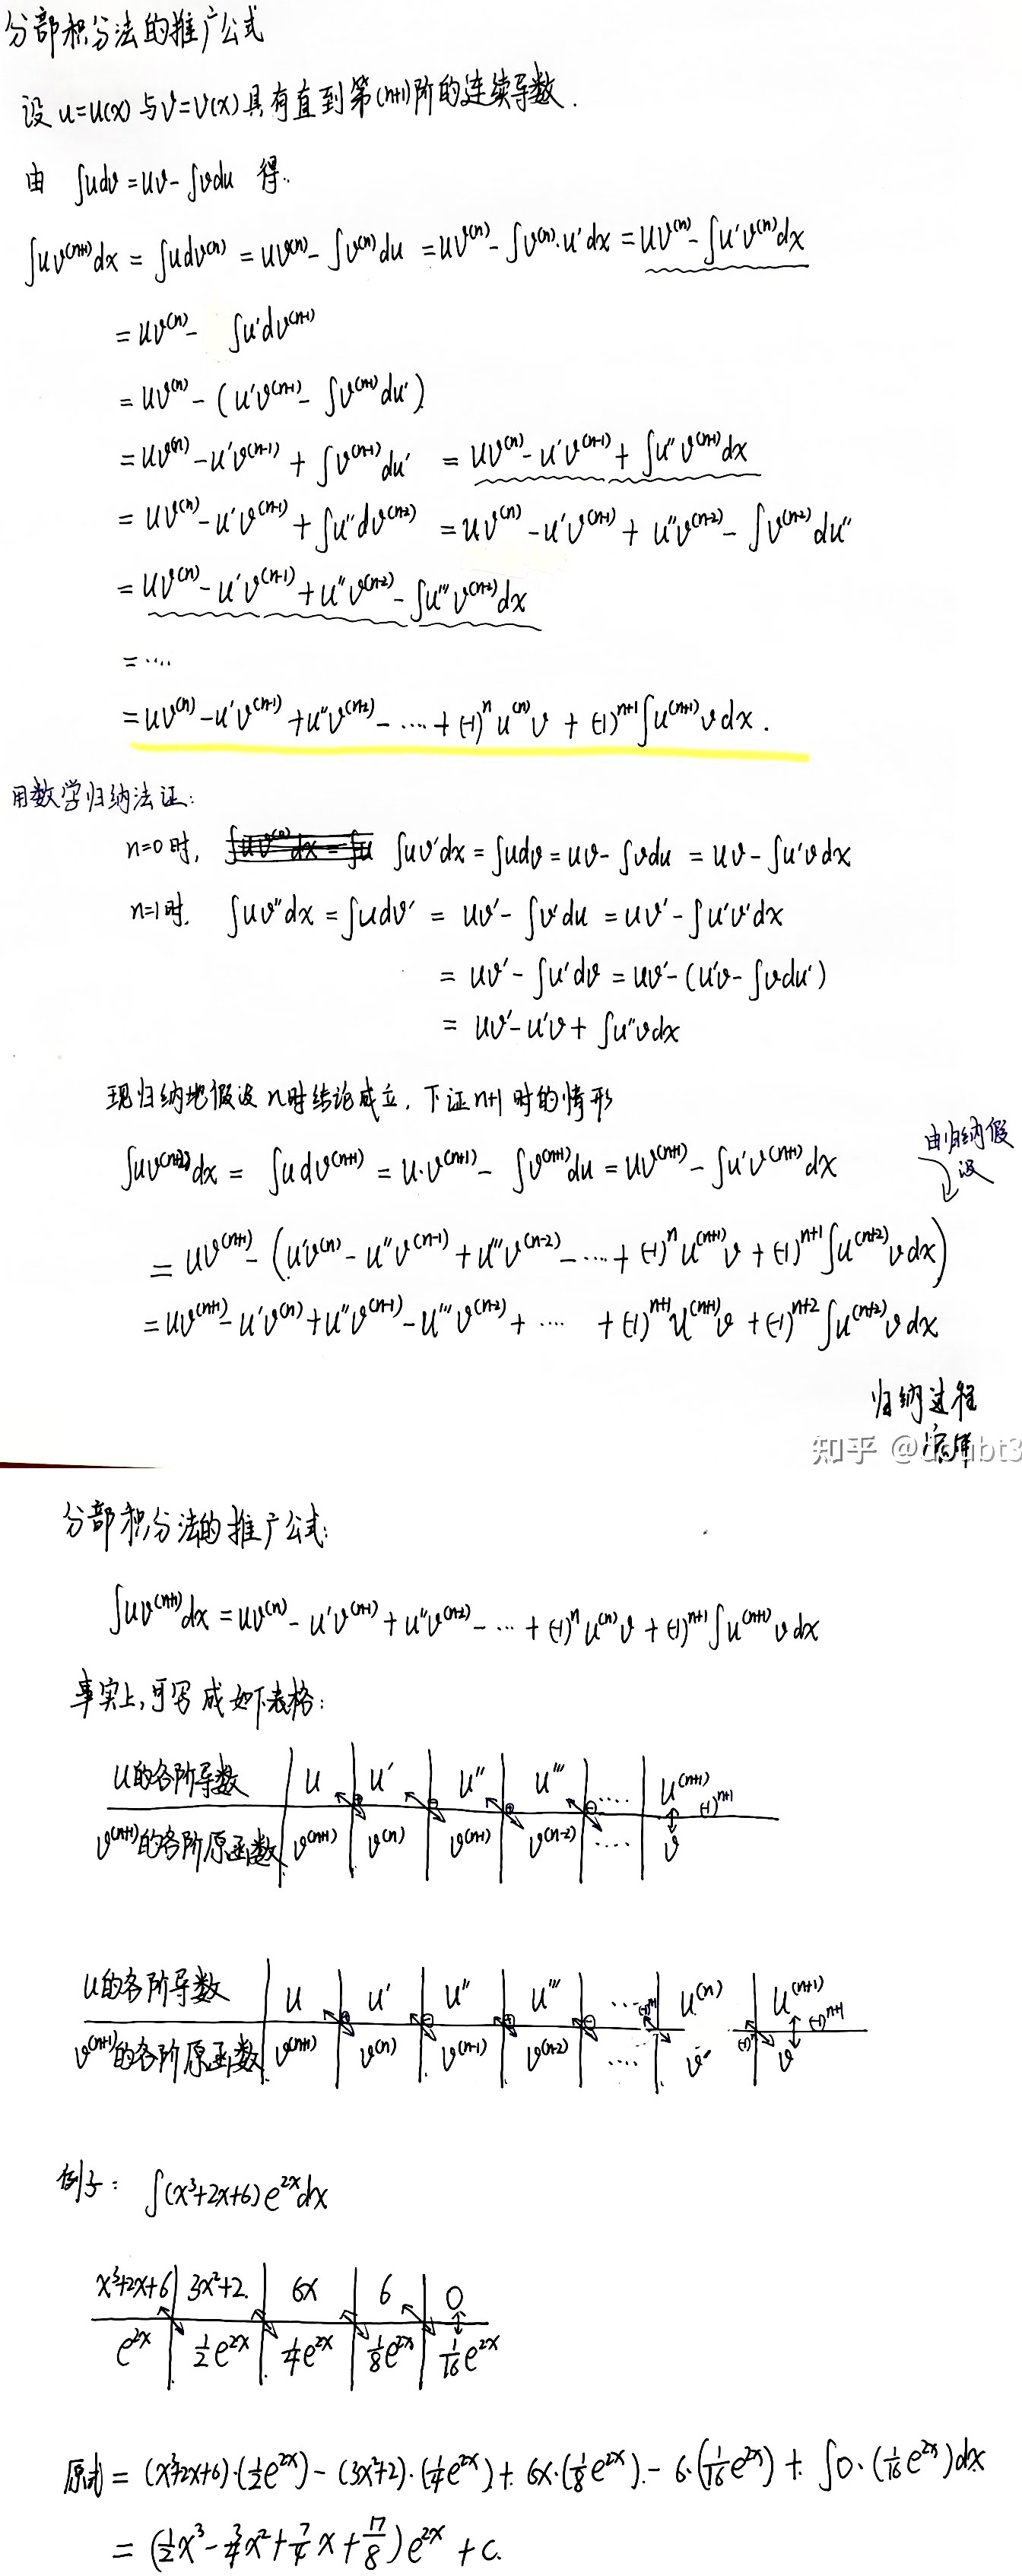 分部积分法的推广公式
设 u=u(x) 与 v=v(x) 具有直到第(n+1)阶的连续导数.
由 ∫udv=uv-∫vdu 得.
∫uv⁽ⁿ⁺¹⁾dx = ∫udv⁽ⁿ⁾ = uv⁽ⁿ⁾-∫v⁽ⁿ⁾du = uv⁽ⁿ⁾-∫v⁽ⁿ⁾·u'dx = uv⁽ⁿ⁾-∫u'v⁽ⁿ⁾dx
= uv⁽ⁿ⁾- ∫u'dv⁽ⁿ⁻¹⁾
= uv⁽ⁿ⁾-(u'v⁽ⁿ⁻¹⁾-∫v⁽ⁿ⁻¹⁾du')
= uv⁽ⁿ⁾-u'v⁽ⁿ⁻¹⁾+∫v⁽ⁿ⁻¹⁾du' = uv⁽ⁿ⁾-u'v⁽ⁿ⁻¹⁾+∫u''v⁽ⁿ⁻¹⁾dx
= uv⁽ⁿ⁾-u'v⁽ⁿ⁻¹⁾+∫u''dv⁽ⁿ⁻²⁾ = uv⁽ⁿ⁾-u'v⁽ⁿ⁻¹⁾+u''v⁽ⁿ⁻²⁾-∫v⁽ⁿ⁻²⁾du''
= uv⁽ⁿ⁾-u'v⁽ⁿ⁻¹⁾+u''v⁽ⁿ⁻²⁾-∫u'''v⁽ⁿ⁻²⁾dx
=····
= uv⁽ⁿ⁾-u'v⁽ⁿ⁻¹⁾+u''v⁽ⁿ⁻²⁾-····+(-1)ⁿu⁽ⁿ⁾v+(-1)ⁿ⁺¹∫u⁽ⁿ⁺¹⁾vdx.
用数学归纳法证:
n=0时, ∫uv'dx=∫udv=uv-∫vdu = uv-∫u'vdx
n=1时. ∫uv''dx=∫udv' = uv'-∫v'du = uv'-∫u'v'dx
= uv'-∫u'dv = uv'-(u'v-∫vdu')
= uv'-u'v+∫u''vdx
现归纳地假设 n时结论成立, 下证n+1时的情形
由归纳假设
∫uv⁽ⁿ⁺²⁾dx = ∫udv⁽ⁿ⁺¹⁾ = u·v⁽ⁿ⁺¹⁾-∫v⁽ⁿ⁺¹⁾du = uv⁽ⁿ⁺¹⁾-∫u'v⁽ⁿ⁺¹⁾dx
= uv⁽ⁿ⁺¹⁾-(u'v⁽ⁿ⁾-u''v⁽ⁿ⁻¹⁾+u'''v⁽ⁿ⁻²⁾-····+(-1)ⁿu⁽ⁿ⁺¹⁾v+(-1)ⁿ⁺¹∫u⁽ⁿ⁺²⁾vdx)
= uv⁽ⁿ⁺¹⁾-u'v⁽ⁿ⁾+u''v⁽ⁿ⁻¹⁾-u'''v⁽ⁿ⁻²⁾+···· +(-1)ⁿ⁺¹u⁽ⁿ⁺¹⁾v+(-1)ⁿ⁺²∫u⁽ⁿ⁺²⁾vdx
归纳过程
完毕
知乎 @doubt3
分部积分法的推广公式:
∫uv⁽ⁿ⁺¹⁾dx = uv⁽ⁿ⁾-u'v⁽ⁿ⁻¹⁾+u''v⁽ⁿ⁻²⁾-···+(-1)ⁿu⁽ⁿ⁾v+(-1)ⁿ⁺¹∫u⁽ⁿ⁺¹⁾vdx
事实上,可写成如下表格:
u的各阶导数 u u' u'' u''' ···· u⁽ⁿ⁺¹⁾ (-1)ⁿ⁺¹
v⁽ⁿ⁺¹⁾的各阶原函数 v⁽ⁿ⁺¹⁾ v⁽ⁿ⁾ v⁽ⁿ⁻¹⁾ v⁽ⁿ⁻²⁾ ···· v
u的各阶导数 u u' u'' u''' ···· u⁽ⁿ⁾ u⁽ⁿ⁺¹⁾ (-1)ⁿ⁺¹
v⁽ⁿ⁺¹⁾的各阶原函数 v⁽ⁿ⁺¹⁾ v⁽ⁿ⁾ v⁽ⁿ⁻¹⁾ v⁽ⁿ⁻²⁾ ···· v' v
例子: ∫(x³+2x+6)e²ˣdx
x³+2x+6 3x²+2 6x 6 0
e²ˣ 1/2e²ˣ 1/4e²ˣ 1/8e²ˣ 1/16e²ˣ
原式 = (x³+2x+6)·(1/2e²ˣ)-(3x²+2)·(1/4e²ˣ)+6x·(1/8e²ˣ)-6·(1/16e²ˣ)+∫0·(1/16e²ˣ)dx
= (1/2x³-3/4x²+7/4x+17/8)e²ˣ+C.